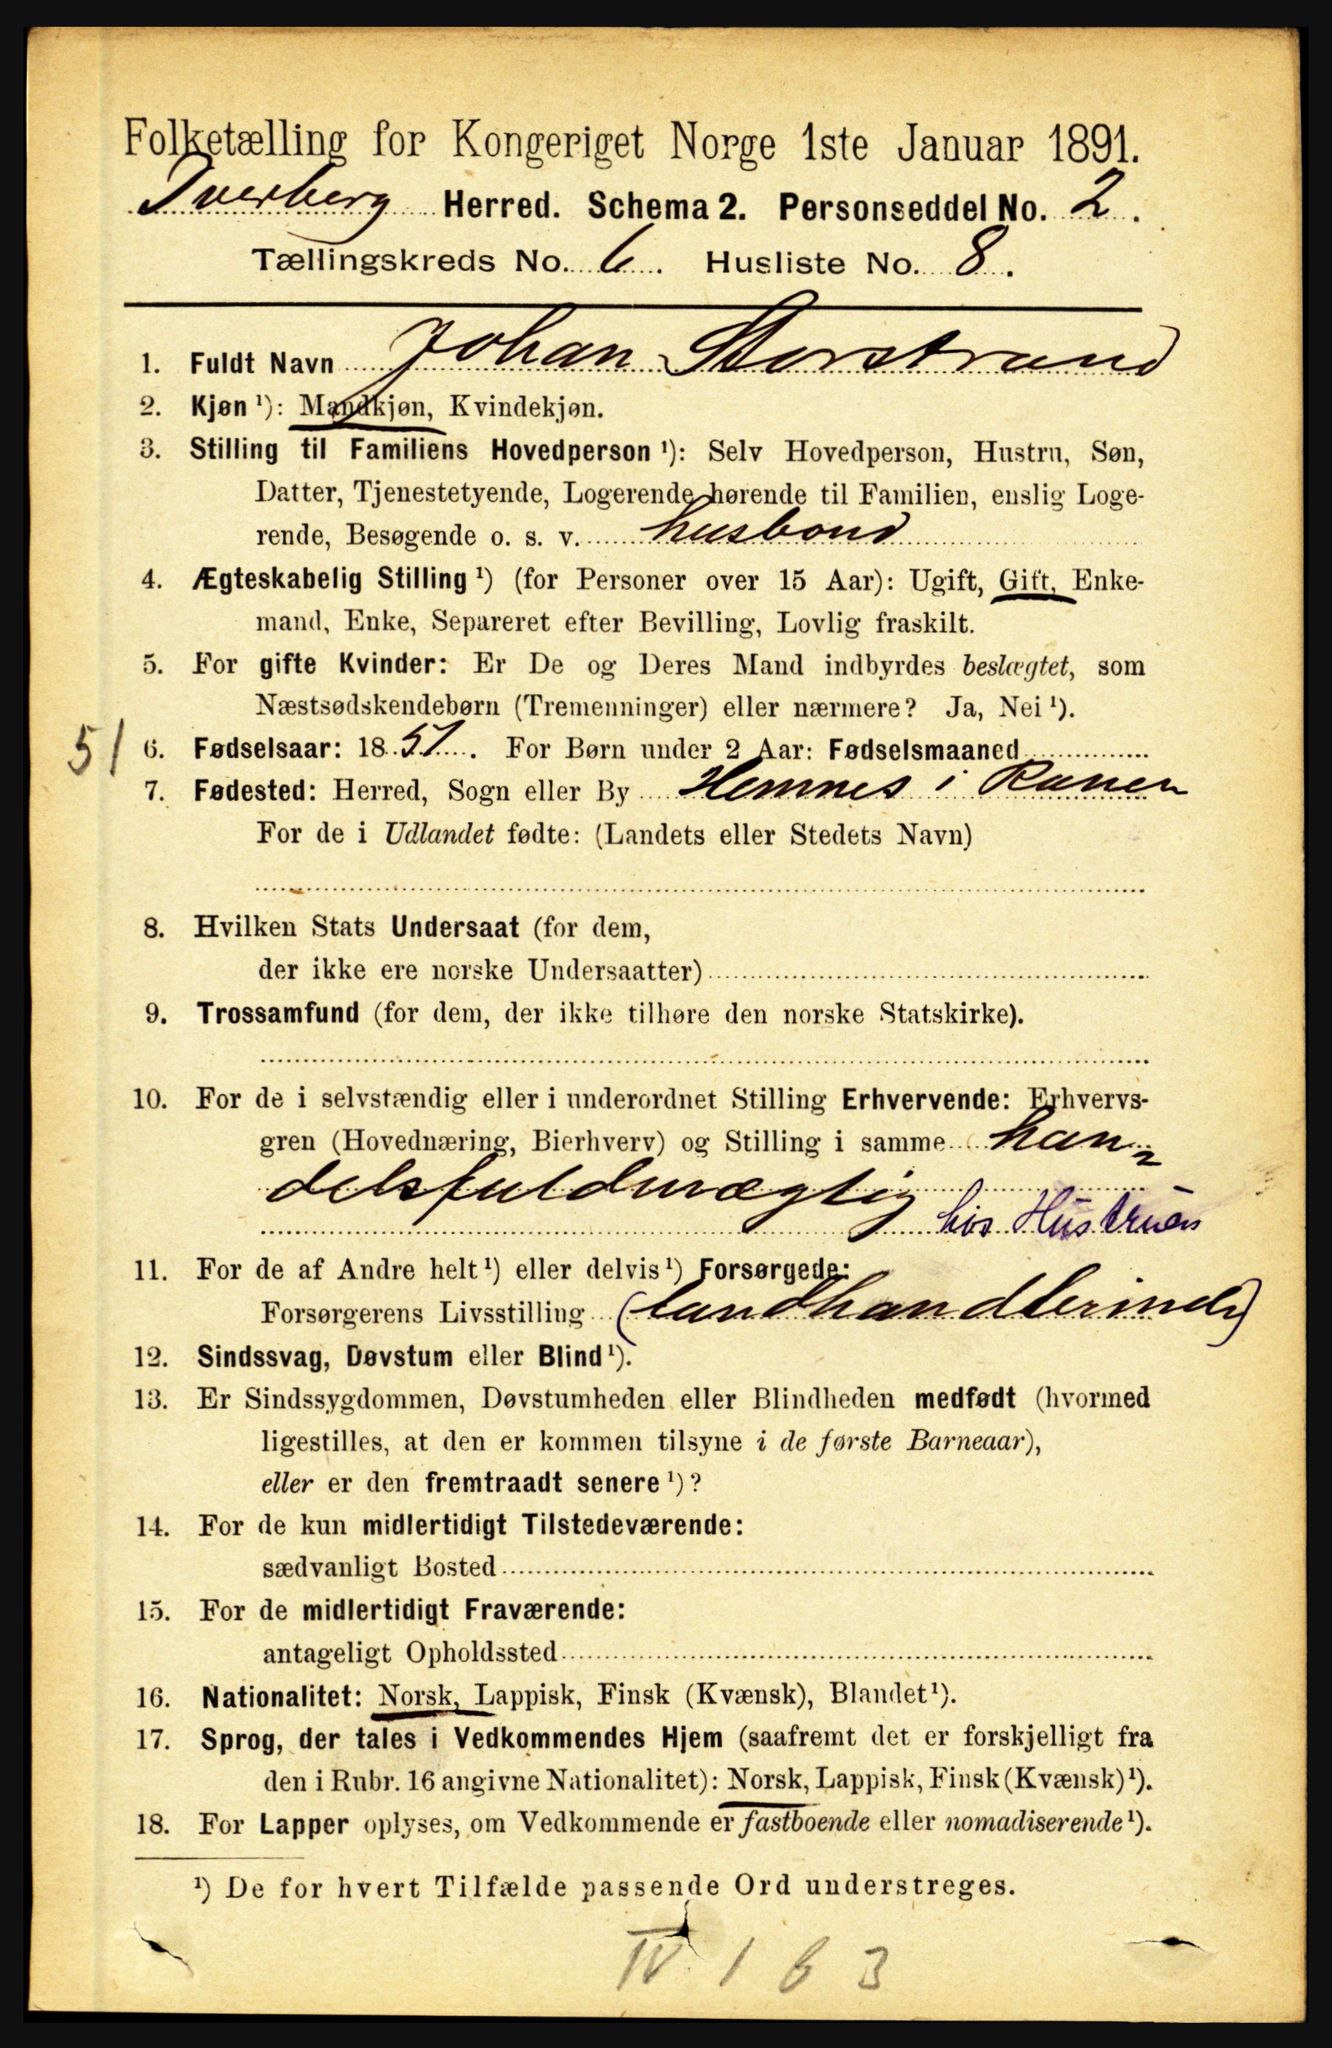 Folketælling for Kongeriget Norge 1ste Januar 1891.
Dverberg Herred. Schema 2. Personseddel No. 2.
Tællingskreds No. 6. Husliste No. 8.
1. Fuldt Navn Johan Storstrand
2. Kjøn ¹): Mandkjøn, Kvindekjøn.
3. Stilling til Familiens Hovedperson ¹): Selv Hovedperson, Hustru, Søn,
Datter, Tjenestetyende, Logerende hørende til Familien, enslig Loge-
rende, Besøgende o. s. v. husbond
4. Ægteskabelig Stilling ¹) (for Personer over 15 Aar): Ugift, Gift, Enke-
mand, Enke, Separeret efter Bevilling, Lovlig fraskilt.
5. For gifte Kvinder: Er De og Deres Mand indbyrdes beslægtet, som
Næstsødskendebørn (Tremenninger) eller nærmere? Ja, Nei ¹).
51 6. Fødselsaar: 1851. For Børn under 2 Aar: Fødselsmaaned
7. Fødested: Herred, Sogn eller By Hemnes i Ranen
For de i Udlandet fødte: (Landets eller Stedets Navn)
8. Hvilken Stats Undersaat (for dem,
der ikke ere norske Undersaatter)
9. Trossamfund (for dem, der ikke tilhøre den norske Statskirke).
10. For de i selvstændig eller i underordnet Stilling Erhvervende: Erhvervs-
gren (Hovednæring, Bierhverv) og Stilling i samme han-
delsfuldmægtig hos Hustruen
11. For de af Andre helt ¹) eller delvis ¹) Forsørgede:
Forsørgerens Livsstilling (landhandlerinde)
12. Sindssvag, Døvstum eller Blind ¹).
13. Er Sindssygdommen, Døvstumheden eller Blindheden medfødt (hvormed
ligestilles, at den er kommen tilsyne i de første Barneaar),
eller er den fremtraadt senere ¹)?
14. For de kun midlertidigt Tilstedeværende:
sædvanligt Bosted
15. For de midlertidigt Fraværende:
antageligt Opholdssted
16. Nationalitet: Norsk, Lappisk, Finsk (Kvænsk), Blandet ¹).
17. Sprog, der tales i Vedkommendes Hjem (saafremt det er forskjelligt fra
den i Rubr. 16 angivne Nationalitet): Norsk, Lappisk, Finsk (Kvænsk) ¹).
18. For Lapper oplyses, om Vedkommende er fastboende eller nomadiserende ¹).
¹) De for hvert Tilfælde passende Ord understreges.
IV 1 6 3